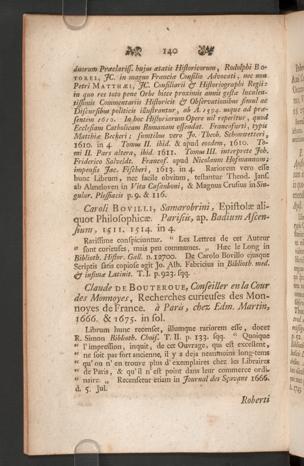 140
duorum Præclariss. hujus ætatis Historicorum, Rudolphi Bo-
TOREI, JC. in magno Franciæ Consilio Advocati, nec non
Petri MATTHÆI, JC. Consiliarii & Historiographi Regii:
in quo res toto pene Orbe hisce proximis annis gestæ luculen-
tissimis Commentariis Historicis & Observationibus simul ac
Discursibus politicis illustrantur, ab A. 1594. usque ad præ-
sentem 1610. In hoc Historiarum Opere nil reperitur, quod
Ecclesiam Catholicam Romanam offendat. Francofurti, typis
Matthiæ Beckeri; sumtibus vero Jo. Theob. Schonvetteri,
1610. in 4. Tomus II. ibid. & apud eodem, 1610. To-
mi II. Pars altera, ibid. 1611. Tomus III. interprete Joh.
Friderico Salveldt. Francof. apud Nicolaum Hofmannum;
impensis Jac. Fischeri, 1613. in 4. Rariorem vero esse
hunc Librum, nec facile obvium, testantur Theod. Jans.
ab Almeloven in Vita Casauboni, & Magnus Crusius in Sin-
gular. Plessiacis p. 9. & 116.
Caroli BOVILLI, Samarobrini, Epistolæ ali-
quot Philosophicæ. Parisiis, ap. Badium Ascen-
sium, 1511. 1514. in 4.
Rarissime conspiciuntur. " Les Lettres de cet Auteur
" sont curieuses, mais peu communes. „ Hæc le Long in
Biblioth. Histor. Gall. n. 12700. De Carolo Bovillo ejusque
Scriptis satis copiose egit Jo. Alb. Fabricius in Biblioth. med.
& infimæ Latinit. T. I. p. 923. sqq.
Claude DE BOUTEROUE, Conseiller en la Cour
des Monnoyes, Recherches curieuses des Mon-
noyes de France. à Paris, chez Edm. Martin,
1666. & 1675. in fol.
Librum hunc recenset, illumque rariorem esse, docet
R. Simon Biblioth. Chois. T. II. p. 133. sqq. " Quoique
" l'impression, inquit, de cet Ouvrage, qui est excellent,
" ne soit pas fort ancienne, il y a deja neanmoins long-tems
" qu'on n'en trouve plus d'exemplaires chez les Libraires
" de Paris, & qu'il n'est point dans leur commerce ordi-
" naire. „ Recensetur etiam in Journal des Sçavans 1666.
d. 5. Jul.
Roberti